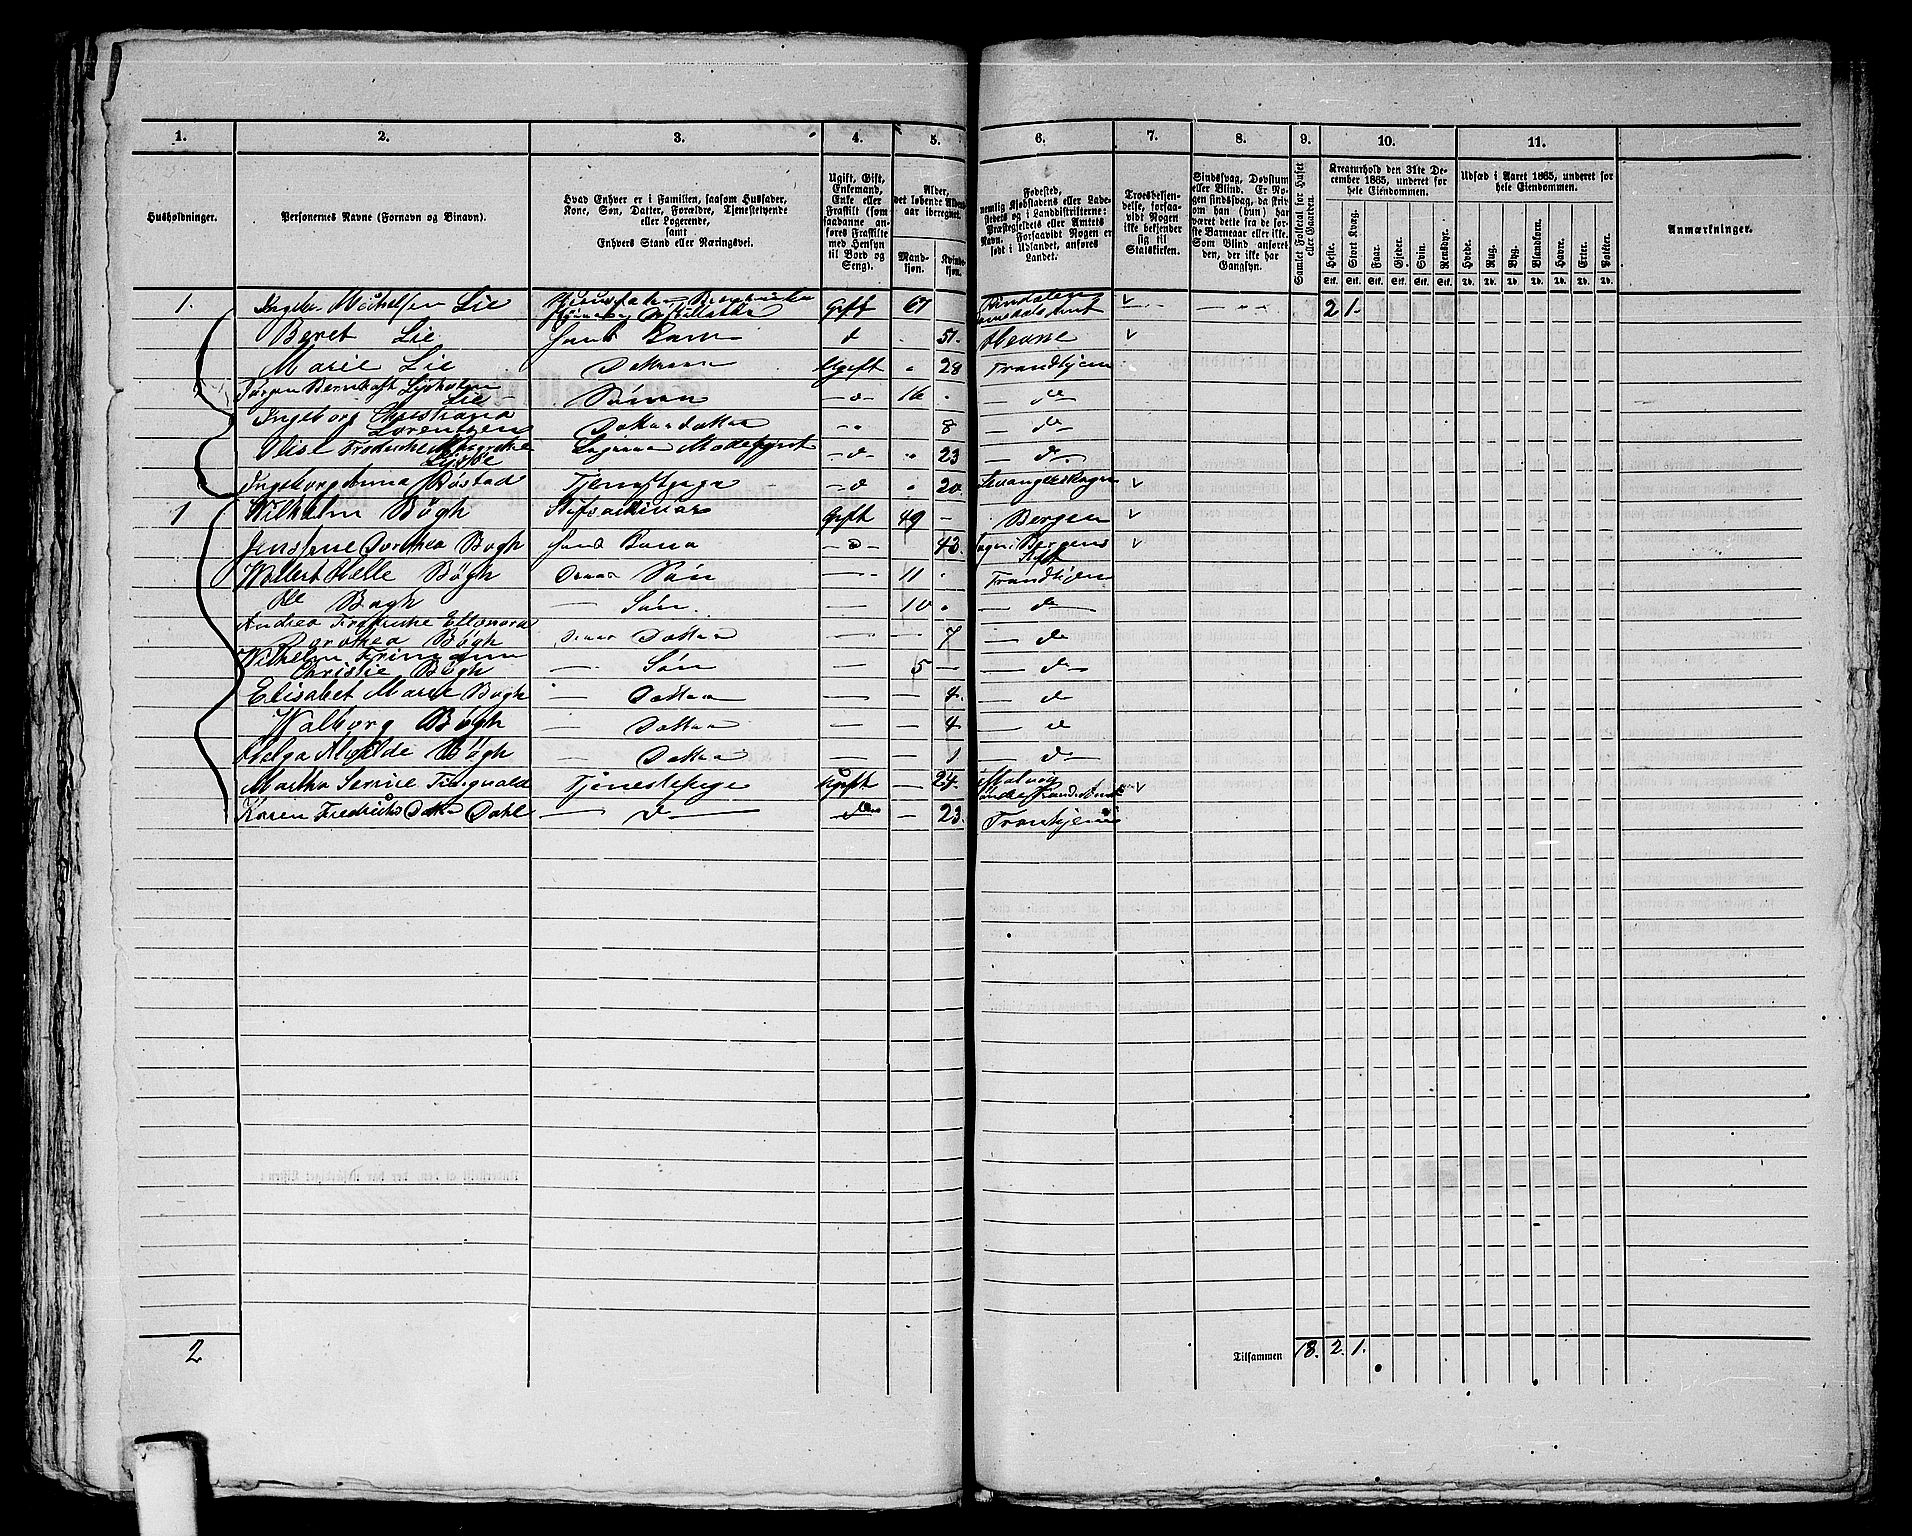 1. 2. 3. 4. 5. 6. 7. 8. 9. 10. 11.
Husholdninger.
Personernes Navne (Fornavn og Binavn).
Hvad Enhver er i Familien, saasom Husfader,
Kone, Søn, Datter, Forældre, Tjenstetyende
eller Logerende,
samt
Enhvers Stand eller Næringsvei.
Ugift, Gift,
Enkemand,
Enke eller
Fraskilt (som
saadanne an-
føres Fraskilte
med Hensyn
til Bord og
Seng).
Alder,
det løbende Alders-
aar iberegnet.
Mand-
kjøn.
Kvinde-
kjøn.
Fødested,
nemlig Kjøbstadens eller Lade-
stedets og i Landdistrikterne:
Præstegjeldets eller Amtets
Navn. Forsaavidt Nogen er
født i Udlandet, anføres
Landet.
Troesbekjen-
delse, forsaa-
vidt Nogen
ikke bekjender
sig til
Statskirken.
Sindssvag, Døvstum
eller Blind. Er No-
gen sindssvag, da skriv
om han (hun) har
været dette fra de før-
ste Barneaar eller ikke.
Som Blind anføres
den, der ikke har
Gangsyn.
Samlet Folketal for Huset
eller Gaarden.
Kreaturhold den 31te De-
cember 1865, underet for
hele Eiendommen.
Heste. Stort Kvæg. Faar. Gjeder. Svin. Rensdyr.
Stk. Stk. Stk. Stk. Stk. Stk.
Udsæd i Aaret 1865, underet for
hele Eiendommen.
Hvede. Rug. Byg. Blandkorn. Havre. Erter. Poteter.
Td. Td. Td. Td. Td. Td. Td.
Anmærkninger.
1. Michelsen Lie Gift 67 2 1.
Beret Lie Hans Kone d 51. Hevne
Marie Lie Datter Ugift 28 Trondhjem
Jørgen Bernhoft
Lie Sønn d 16 d
Ingeborg Christiana
Lorentzen Datterdatter 8 d
Elise Frederikke
Logerer d 23 d
Ingeborg Anna Røstad Tjenestepige d 20
1 Wilhelm Bøgh Gift 49 Bergen
Jenssine Dorthea Bøgh Hans Kone d 43. Bergens
Stift
Wollert Helle Bøgh deres Søn 11 Trondhjem
Ole Bøgh Søn. 10 d
Andrea Fredrikke Elleonora
Dorothea Bøgh deres Datter 7 d
Wilhelm
Christie Bøgh Søn 5 d
Elisabet Marie Bøgh Datter 4 d
Walborg Bøgh Datter 4 d
Helga Bøgh Datter 1 d
Martha Tjenestepige Ugift 24. Malvig
Karen Fredriks Datter Dahl d d 23. Tronhjem
2 Tilsammen 18. 2. 1.